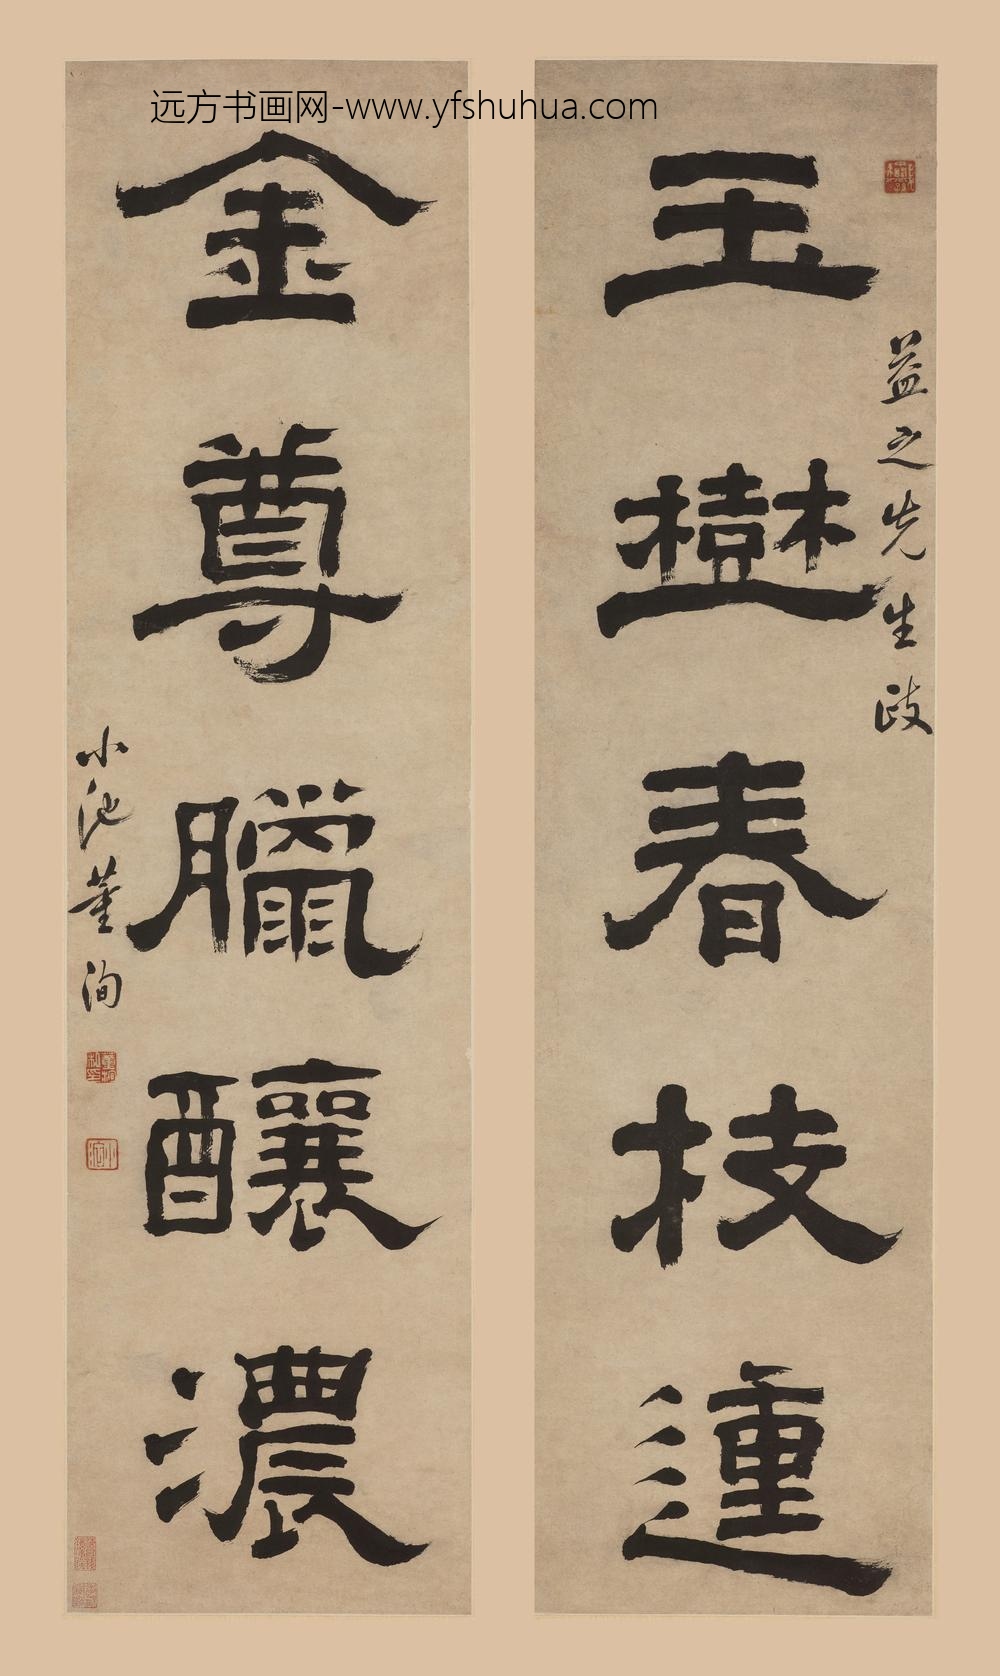 远方书画网-www.yfshuhua.com
玉樹春枝𨔝
益之先生政
金尊臘釀濃
小池董洵
小池